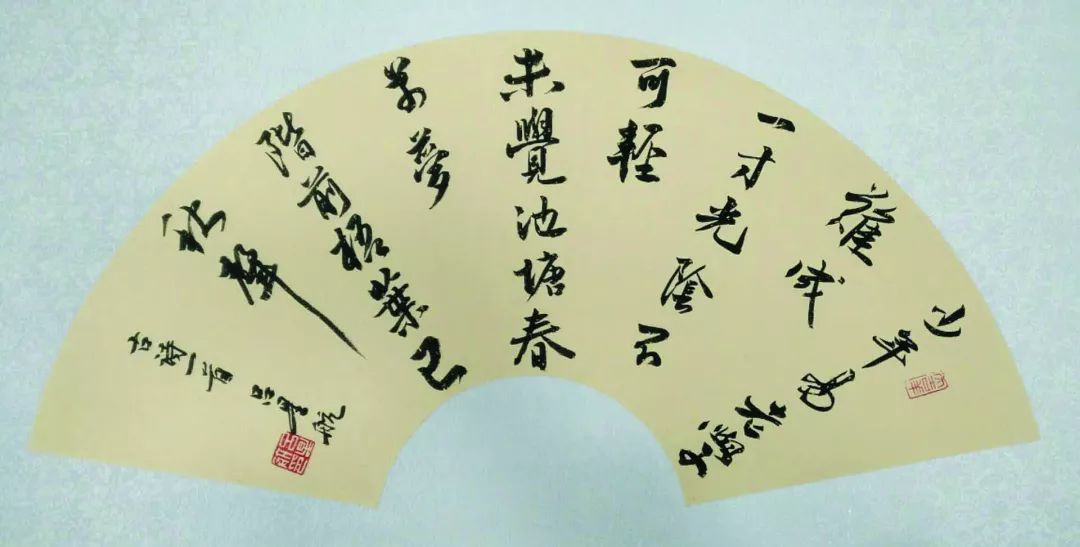 少年易老學
難成
一寸光陰不
可輕
未覺池塘春
草夢
階前梧葉已
秋聲
古詩一首